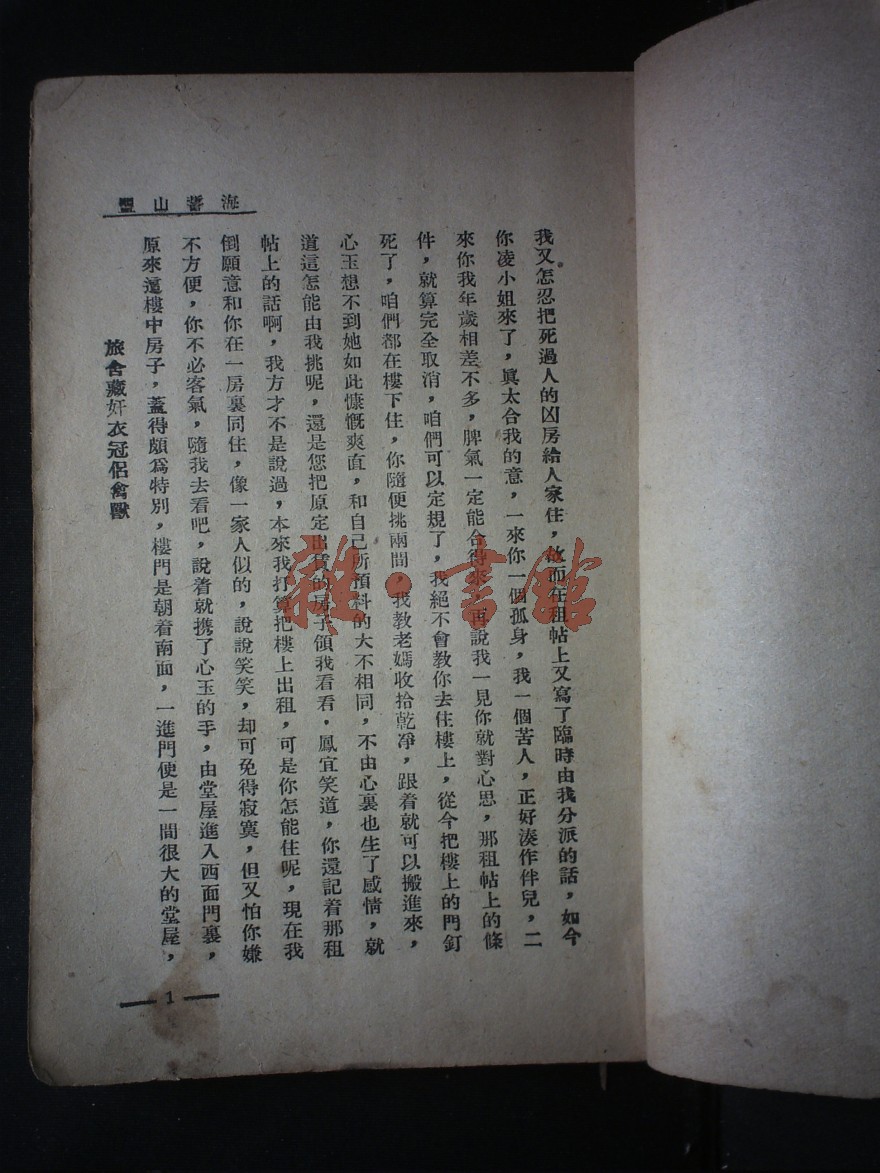 海誓山盟
我又怎忍把死過人的凶房給人家住，故而在租帖上又寫了臨時由我分派的話，如今
你凌小姐來了，眞太合我的意，一來你一個孤身，我一個苦人，正好湊作伴兒，二
來你我年歲相差不多，脾氣一定能合得來，再說我一見你就對心思，那租帖上的條
件，就算完全取消，咱們可以定規了，我絕不會教你去住樓上，從今把樓上的門釘
死了，咱們都在樓下住，你隨便挑兩間，我教老媽收拾乾凈，跟着就可以搬進來，
心玉想不到她如此慷慨爽直，和自己所預料的大不相同，不由心裏也生了感情，就
道這怎能由我挑呢，還是您把原定出賃的房子領我看看，鳳宜笑道，你還記着那租
帖上的話啊，我方才不是說過，本來我打算把樓上出租，可是你怎能住呢，現在我
倒願意和你在一房裏同住，像一家人似的，說說笑笑，却可免得寂寞，但又怕你嫌
不方便，你不必客氣，隨我去看吧，說着就携了心玉的手，由堂屋進入西面門裏，
原來這樓中房子，蓋得頗爲特別，樓門是朝着南面，一進門便是一間很大的堂屋，
旅舍藏奸衣冠侶禽獸
1
雜·書館